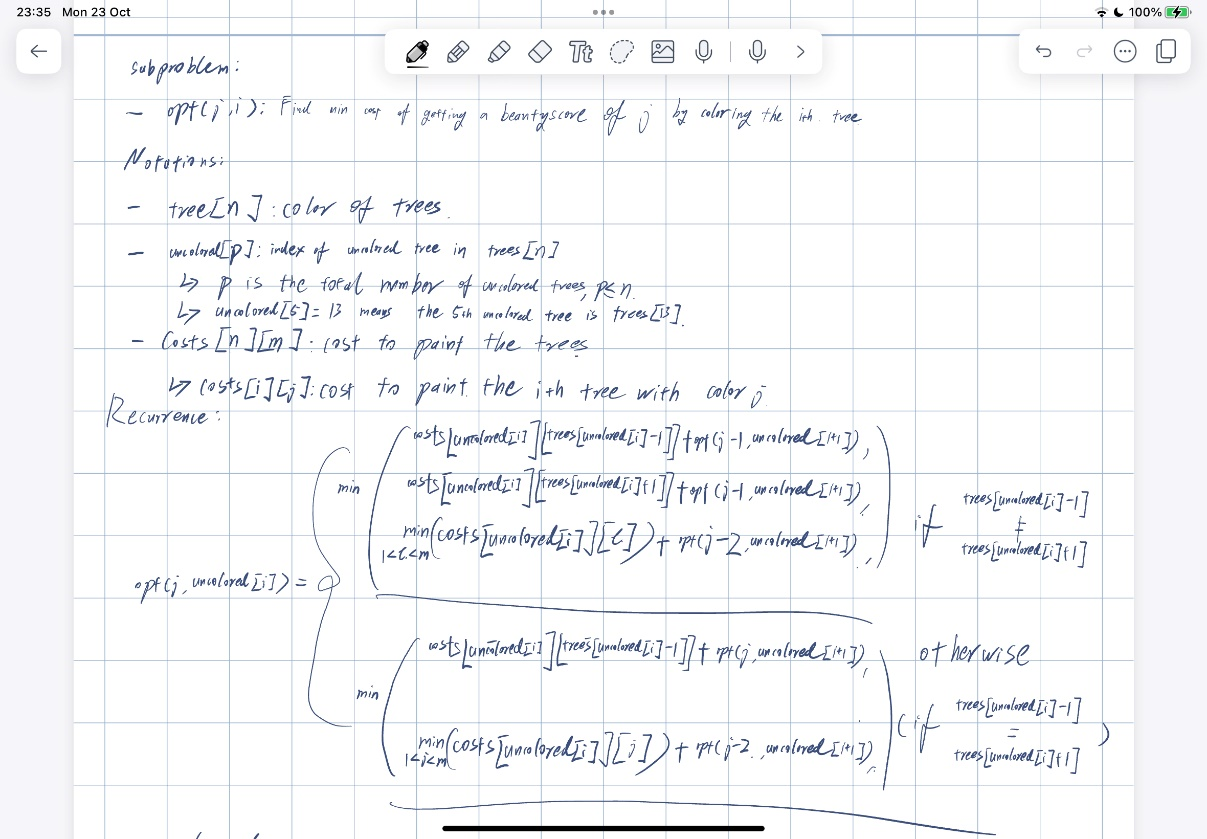 23:35 Mon 23 Oct
100%
Tt
subproblem:
- opt(j,i): Find min cost of getting a beautyscore of j by coloring the ith tree
Notations:
- tree[n]: color of trees.
- uncolored[p]: index of uncolored tree in trees[n]
↳ p is the total number of uncolored trees, p≤n.
↳ uncolored[5]=13 means the 5th uncolored tree is trees[13].
- Costs[n][m]: cost to paint the trees
↳ costs[i][j]: cost to paint the ith tree with color j.
Recurrence:
costs[uncolored[i]][trees[uncolored[i]-1]]+opt(j-1,uncolored[i+1]),
min
costs[uncolored[i]][trees[uncolored[i]+1]]+opt(j-1,uncolored[i+1]),
min(costs[uncolored[i]][t])+opt(j-2,uncolored[i+1]),
1<t<m
if trees[uncolored[i]-1]
≠
trees[uncolored[i]+1]
opt(j,uncolored[i])=
costs[uncolored[i]][trees[uncolored[i]-1]]+opt(j,uncolored[i+1]),
otherwise
min
min(costs[uncolored[i]][j])+opt(j-2,uncolored[i+1]),
1<j<m
(if trees[uncolored[i]-1]
=
trees[uncolored[i]+1])